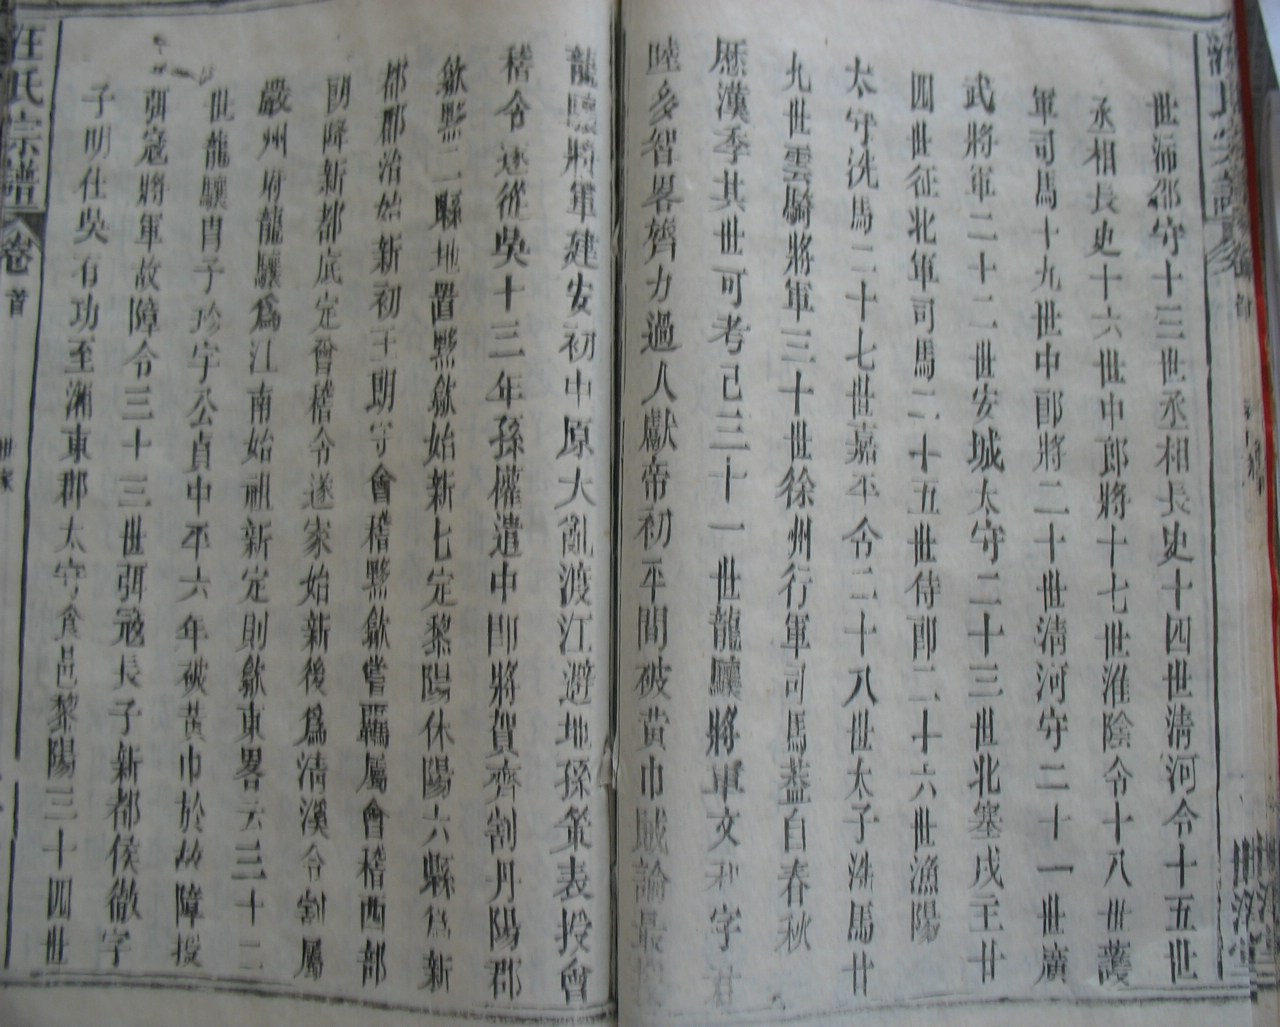 世沛郡守十三世丞相長史十四世淸河令十五世
丞相長史十六世中郎將十七世淮陰令十八世護
軍司馬十九世中郎將二十世淸河守二十一世廣
武將軍二十二世安城太守二十三世北塞戍主廿
四世征北軍司馬二十五世侍郎二十六世漁陽
太守洗馬二十七世嘉平令二十八世太子洗馬廿
九世雲騎將軍三十世徐州行軍司馬葢自春秋
歴漢季其世可考已三十一世龍驤將軍文和字君
睦多智畧膂力過人獻帝初平間破黃巾賊論最
龍驤將軍建安初中原大亂渡江避地孫策表授會
稽令遂從吳十三年孫權遣中郎將賀齊割丹陽郡
歙黟二縣地置黟歙始新七定黎陽休陽六縣爲新
都郡治始新初王期守會稽黟歙嘗羈屬會稽西部
國降新都底定會稽令遂家始新後爲淸溪令割屬
嚴州府龍驤爲江南始祖新定則歙東畧云三十二
世龍驤冑子珍字公貞中平六年破黃巾於故障授
弭寇將軍故障令三十三世弭寇長子新都侯徹字
子明仕吳有功至湘東郡太守食邑黎陽三十四世
汪氏宗譜 卷首 世家